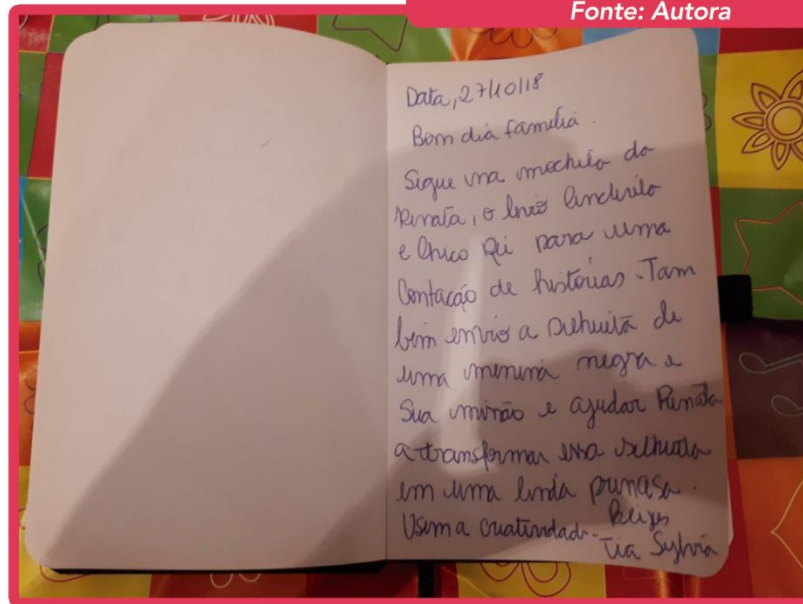 Fonte: Autora
Data, 27/10/18
Bom dia família.
Segue na mochila da
Renata, o livro Cinderela
e Chico Rei para uma
Contação de histórias. Tam
bém envio a silhueta de
uma menina negra e
Sua missão é ajudar Renata
a transformar essa silhueta
em uma linda princesa.
Usem a criatividade. Beijos
Tia Sylvia